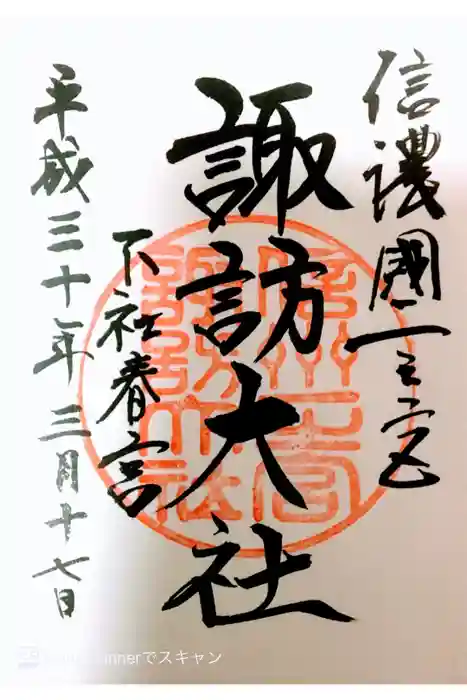 信濃國一之宮
諏訪大社
下社春宮
平成三十年三月十七日
Scannerでスキャン